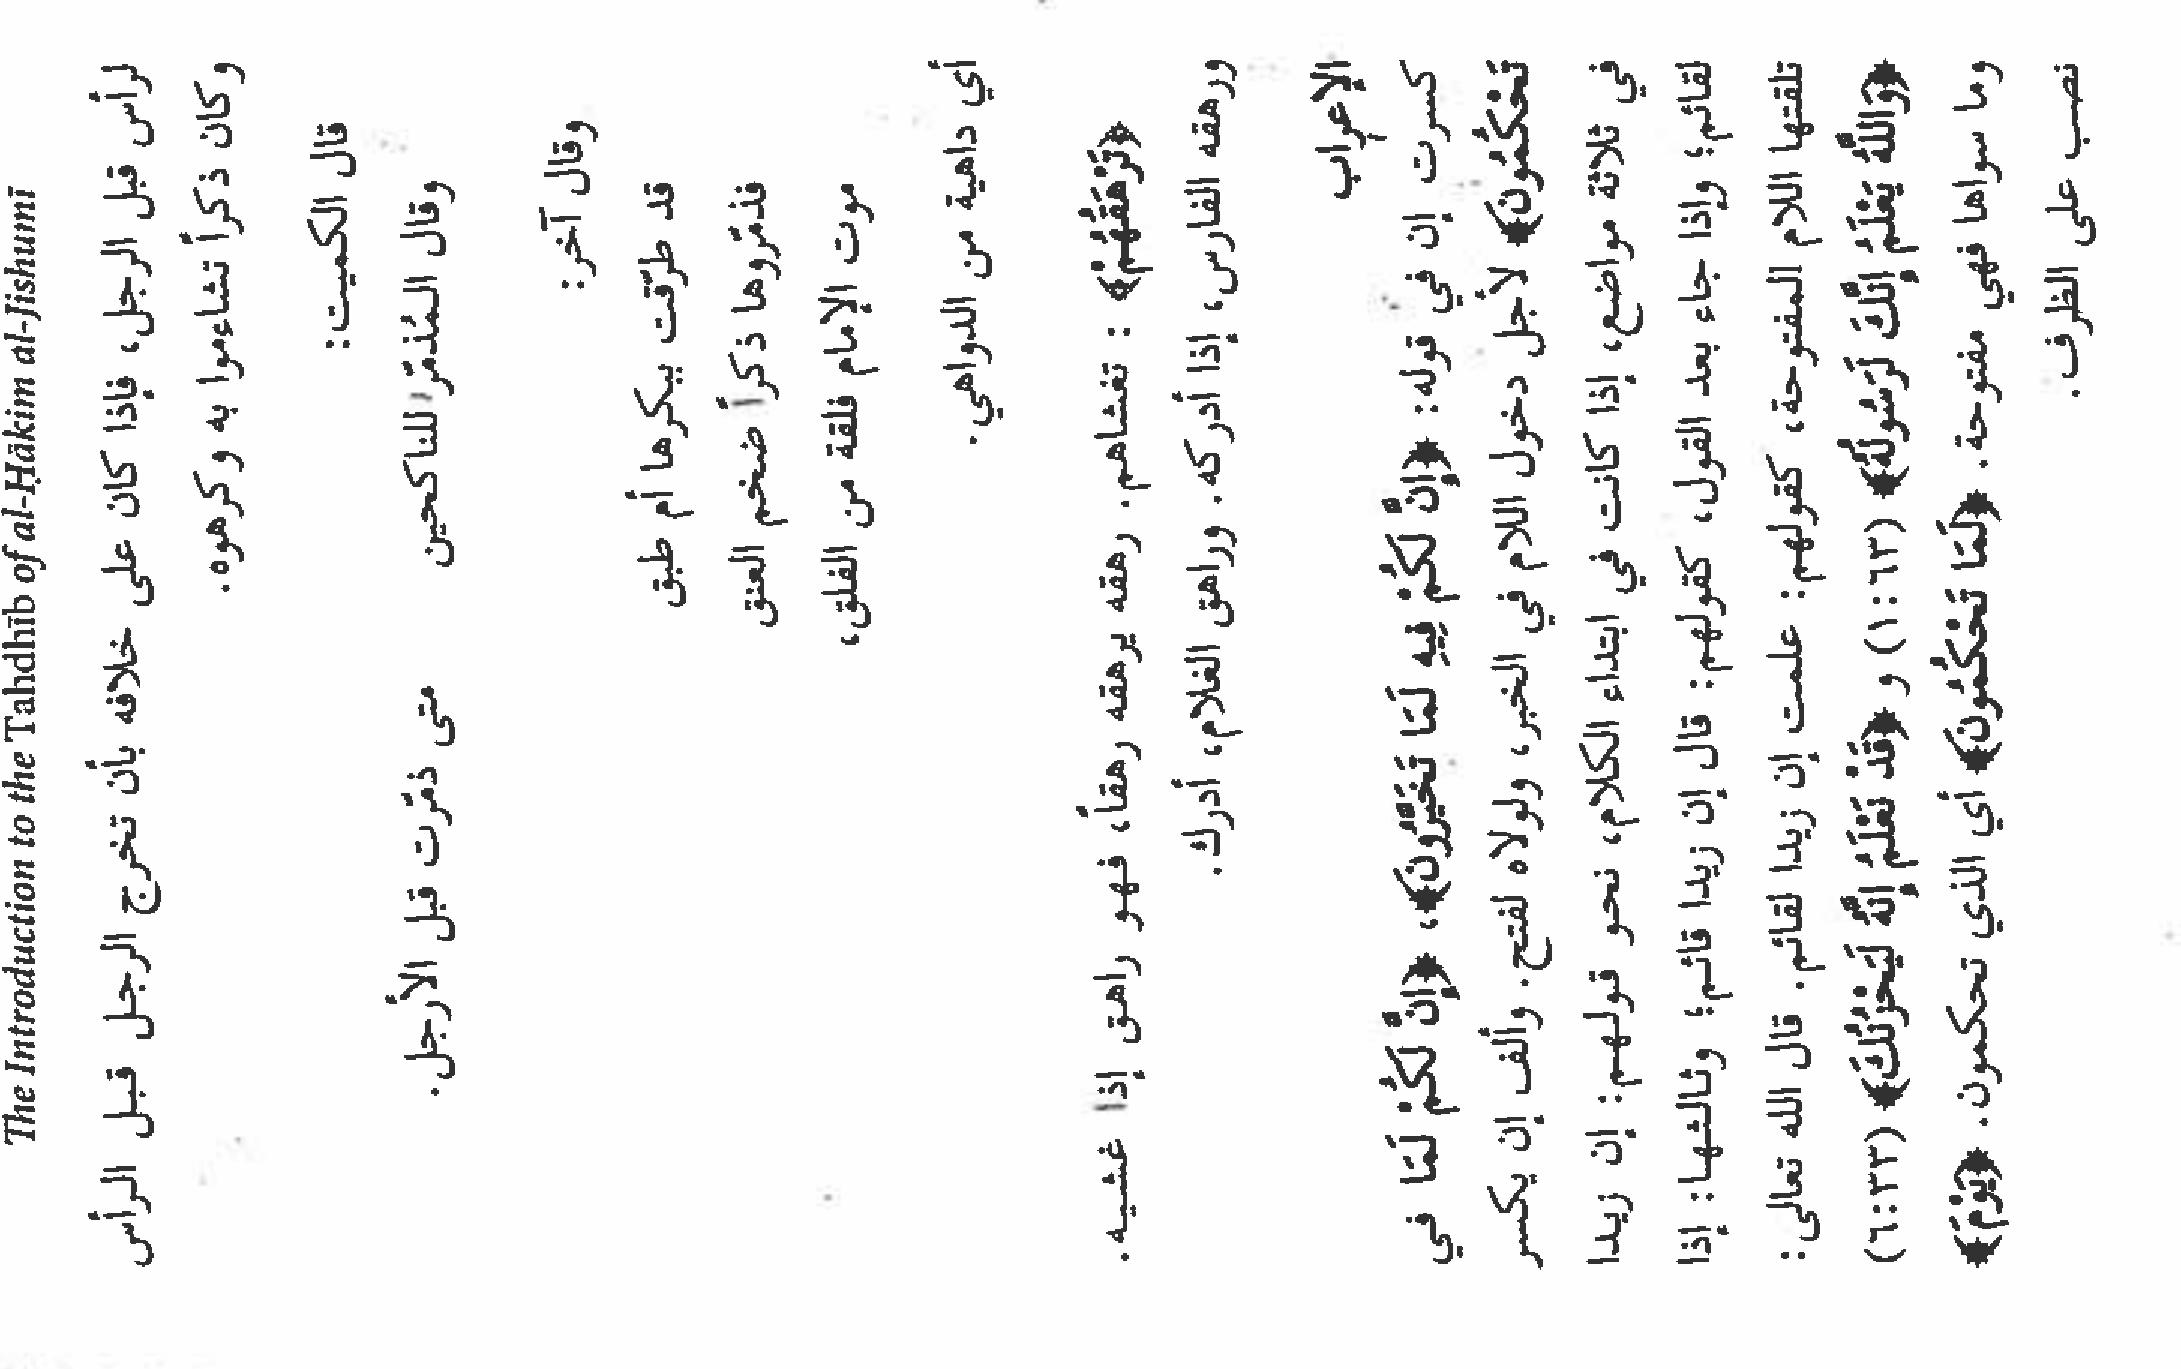 The Introduction to the Tahdhīb of al-Ḥākim al-Jishumī
لرأس قبل الرجل، فإذا كان على خلافه بأن تخرج الرجل قبل الرأس
وكان ذكراً تشاءموا به وكرهوه.
قال الكميت:
وقال المُذمِّر للناكحين متى ذمّرت قبل الأرجل.
وقال آخر:
قد طرّقت ببكرها أم طبق
فذمّروها ذكراً ضخم العنق
موت الإمام فلقة من الفلق،
أي داهية من الدواهي.
﴿تَرْهَقُهُمْ﴾: تغشاهم. رهقه يرهقه رهقاً، فهو راهق إذا غشيه.
ورهقه الفارس، إذا أدركه. وراهق الغلام، أدرك.
الإعراب
كسرت إن في قوله: ﴿إِنَّ لَكُمْ فِيهِ لَمَا تَخَيَّرُونَ﴾، ﴿إِنَّ لَكُمْ لَمَا في
تَحْكُمُونَ﴾ لأجل دخول اللام في الخبر، ولولاه لفتح. وألف إن يكسر
في ثلاثة مواضع، إذا كانت في ابتداء الكلام، نحو قولهم: إن زيدا
لقائم؛ وإذا جاء بعد القول، كقولهم: قال إن زيدا قائم؛ وثالثها: إذا
تلقتها اللام المفتوحة، كقولهم: علمت إن زيدا لقائم. قال الله تعالى:
﴿وَاللَّهُ يَعْلَمُ إِنَّكَ لَرَسُولُهُ﴾ (٦٣:١) و ﴿قَدْ نَعْلَمُ إِنَّهُ لَيَحْزُنُكَ﴾ (٦:٣٣)
وما سواها فهي مفتوحة. ﴿لَمَا تَحْكُمُونَ﴾ أي الذي تحكمون. ﴿يَوْمَ﴾
نصب على الظرف.